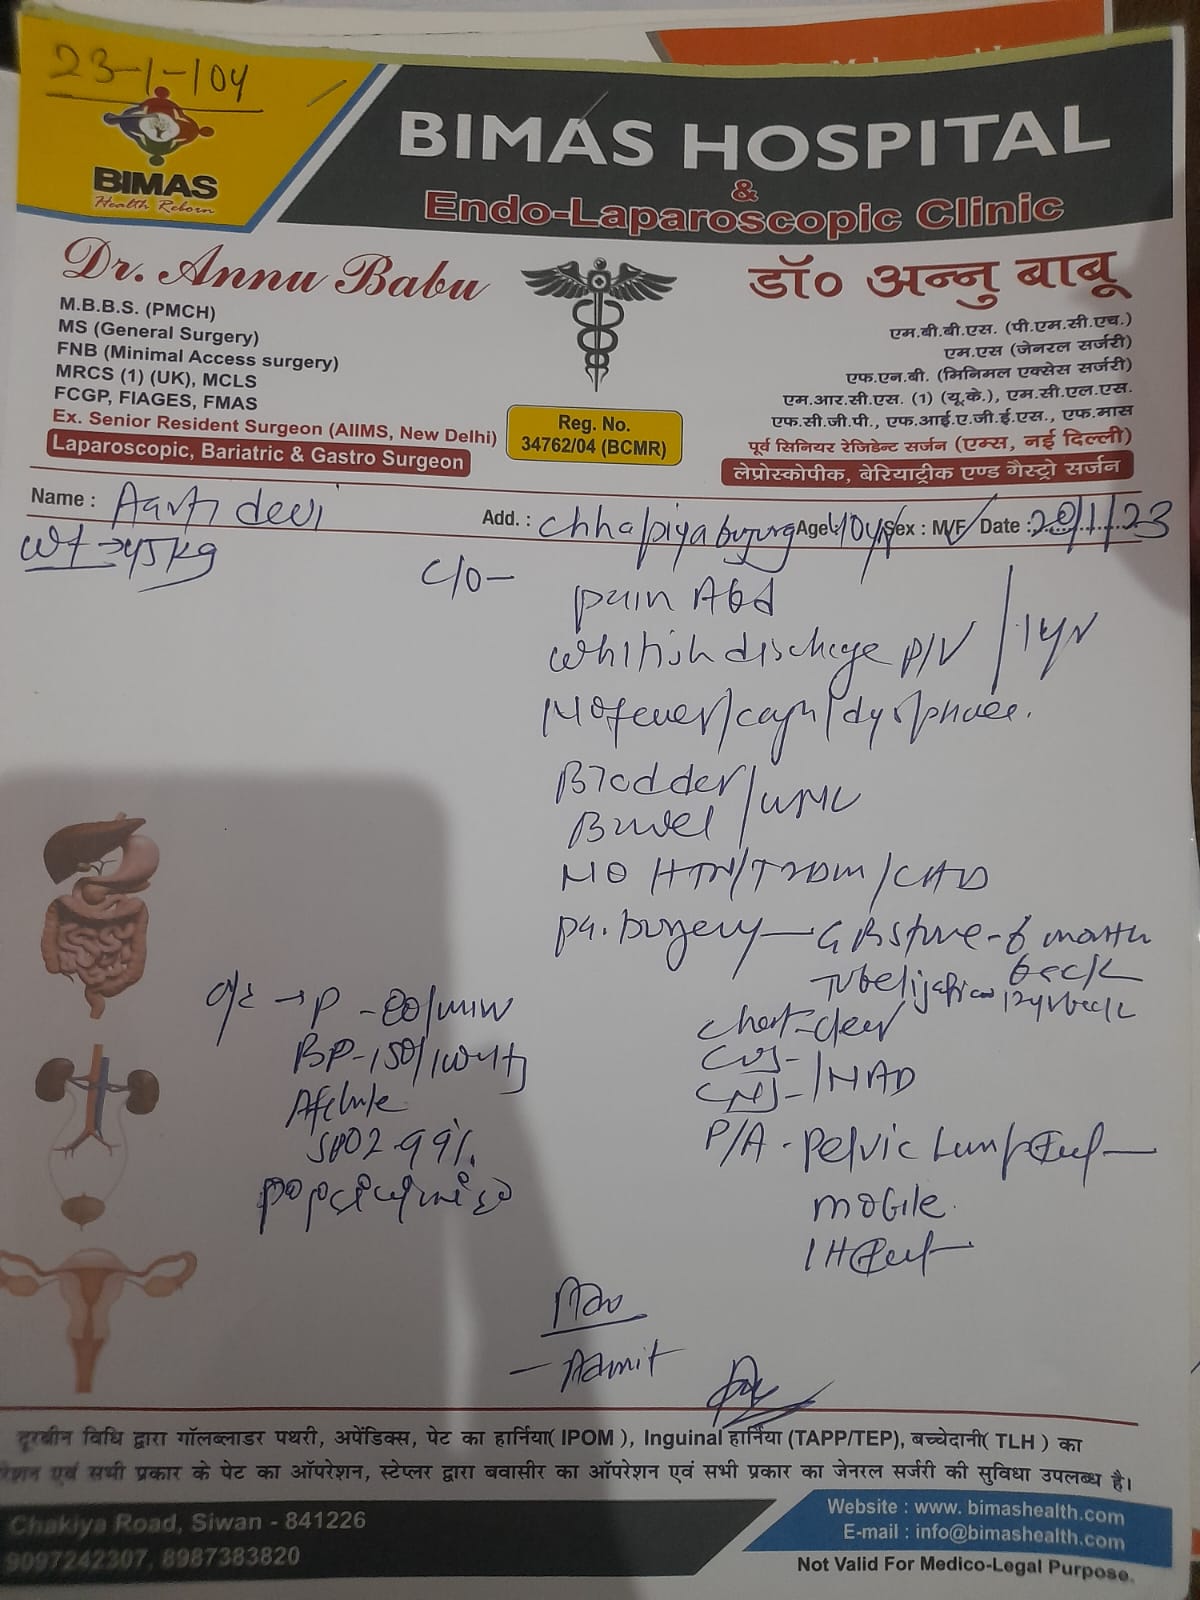 23-1-104
BIMAS
Health Reborn
BIMAS HOSPITAL
&
Endo-Laparoscopic Clinic
Dr. Annu Babu
M.B.B.S. (PMCH)
MS (General Surgery)
FNB (Minimal Access surgery)
MRCS (1) (UK), MCLS
FCGP, FIAGES, FMAS
Ex. Senior Resident Surgeon (AIIMS, New Delhi)
Laparoscopic, Bariatric & Gastro Surgeon
Reg. No.
34762/04 (BCMR)
डॉ० अन्नु बाबू
एम.बी.बी.एस. (पी.एम.सी.एच.)
एम.एस (जेनरल सर्जरी)
एफ.एन.बी. (मिनिमल एक्सेस सर्जरी)
एम.आर.सी.एस. (1) (यू.के.), एम.सी.एल.एस.
एफ.सी.जी.पी., एफ.आई.ए.जी.ई.एस., एफ.मास
पूर्व सिनियर रेजिडेन्ट सर्जन (एम्स, नई दिल्ली)
लेप्रोस्कोपीक, बेरियाट्रीक एण्ड गैस्ट्रो सर्जन
Name : Aarti devi Add. : Chhapiya buzurg Age 40yr Sex : M/F Date : 20/1/23
Wt → 45kg
C/O - pain Abd
Whitish discharge P/V / 1yr
No fever/cough/
Bladder
Bowel
NO HTN/T2DM/CAD
Surgery - GB stone - 6 month back
Tubeligation 12yr back
O/E → P - 80/min
BP - 150/100
Afebrile
SPO2 - 99%
Chest - clear
CVS -
CNS - / NAD
P/A - Pelvic Lump
mobile.
Adv
- Admit
दूरबीन विधि द्वारा गॉलब्लाडर पथरी, अपेंडिक्स, पेट का हार्निया( IPOM ), Inguinal हार्निया (TAPP/TEP), बच्चेदानी( TLH ) का
रेशन एवं सभी प्रकार के पेट का ऑपरेशन, स्टेप्लर द्वारा बवासीर का ऑपरेशन एवं सभी प्रकार का जेनरल सर्जरी की सुविधा उपलब्ध है।
Chakiya Road, Siwan - 841226
9097242307, 8987383820
Website : www. bimashealth.com
E-mail : info@bimashealth.com
Not Valid For Medico-Legal Purpose.